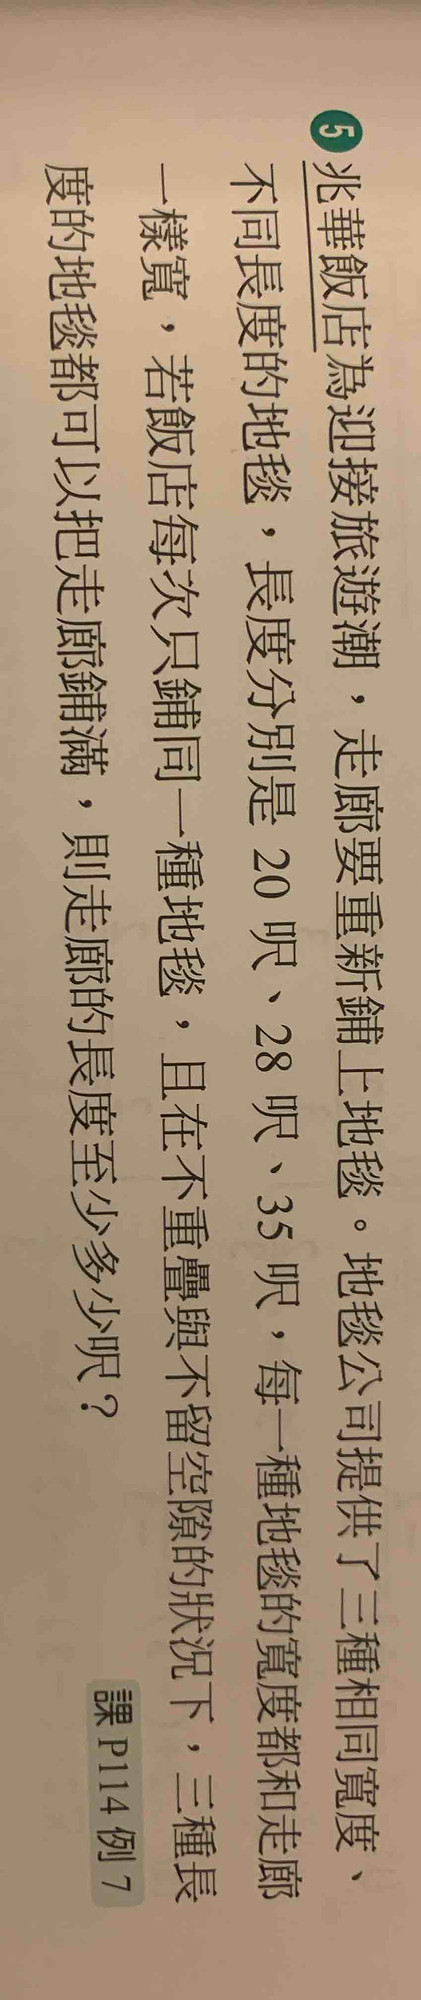 5 兆華飯店為迎接旅遊潮，走廊要重新鋪上地毯。地毯公司提供了三種相同寬度、
不同長度的地毯，長度分別是 20 呎、28 呎、35 呎，每一種地毯的寬度都和走廊
一樣寬，若飯店每次只鋪同一種地毯，且在不重疊與不留空隙的狀況下，三種長
度的地毯都可以把走廊鋪滿，則走廊的長度至少多少呎？
課 P114 例 7